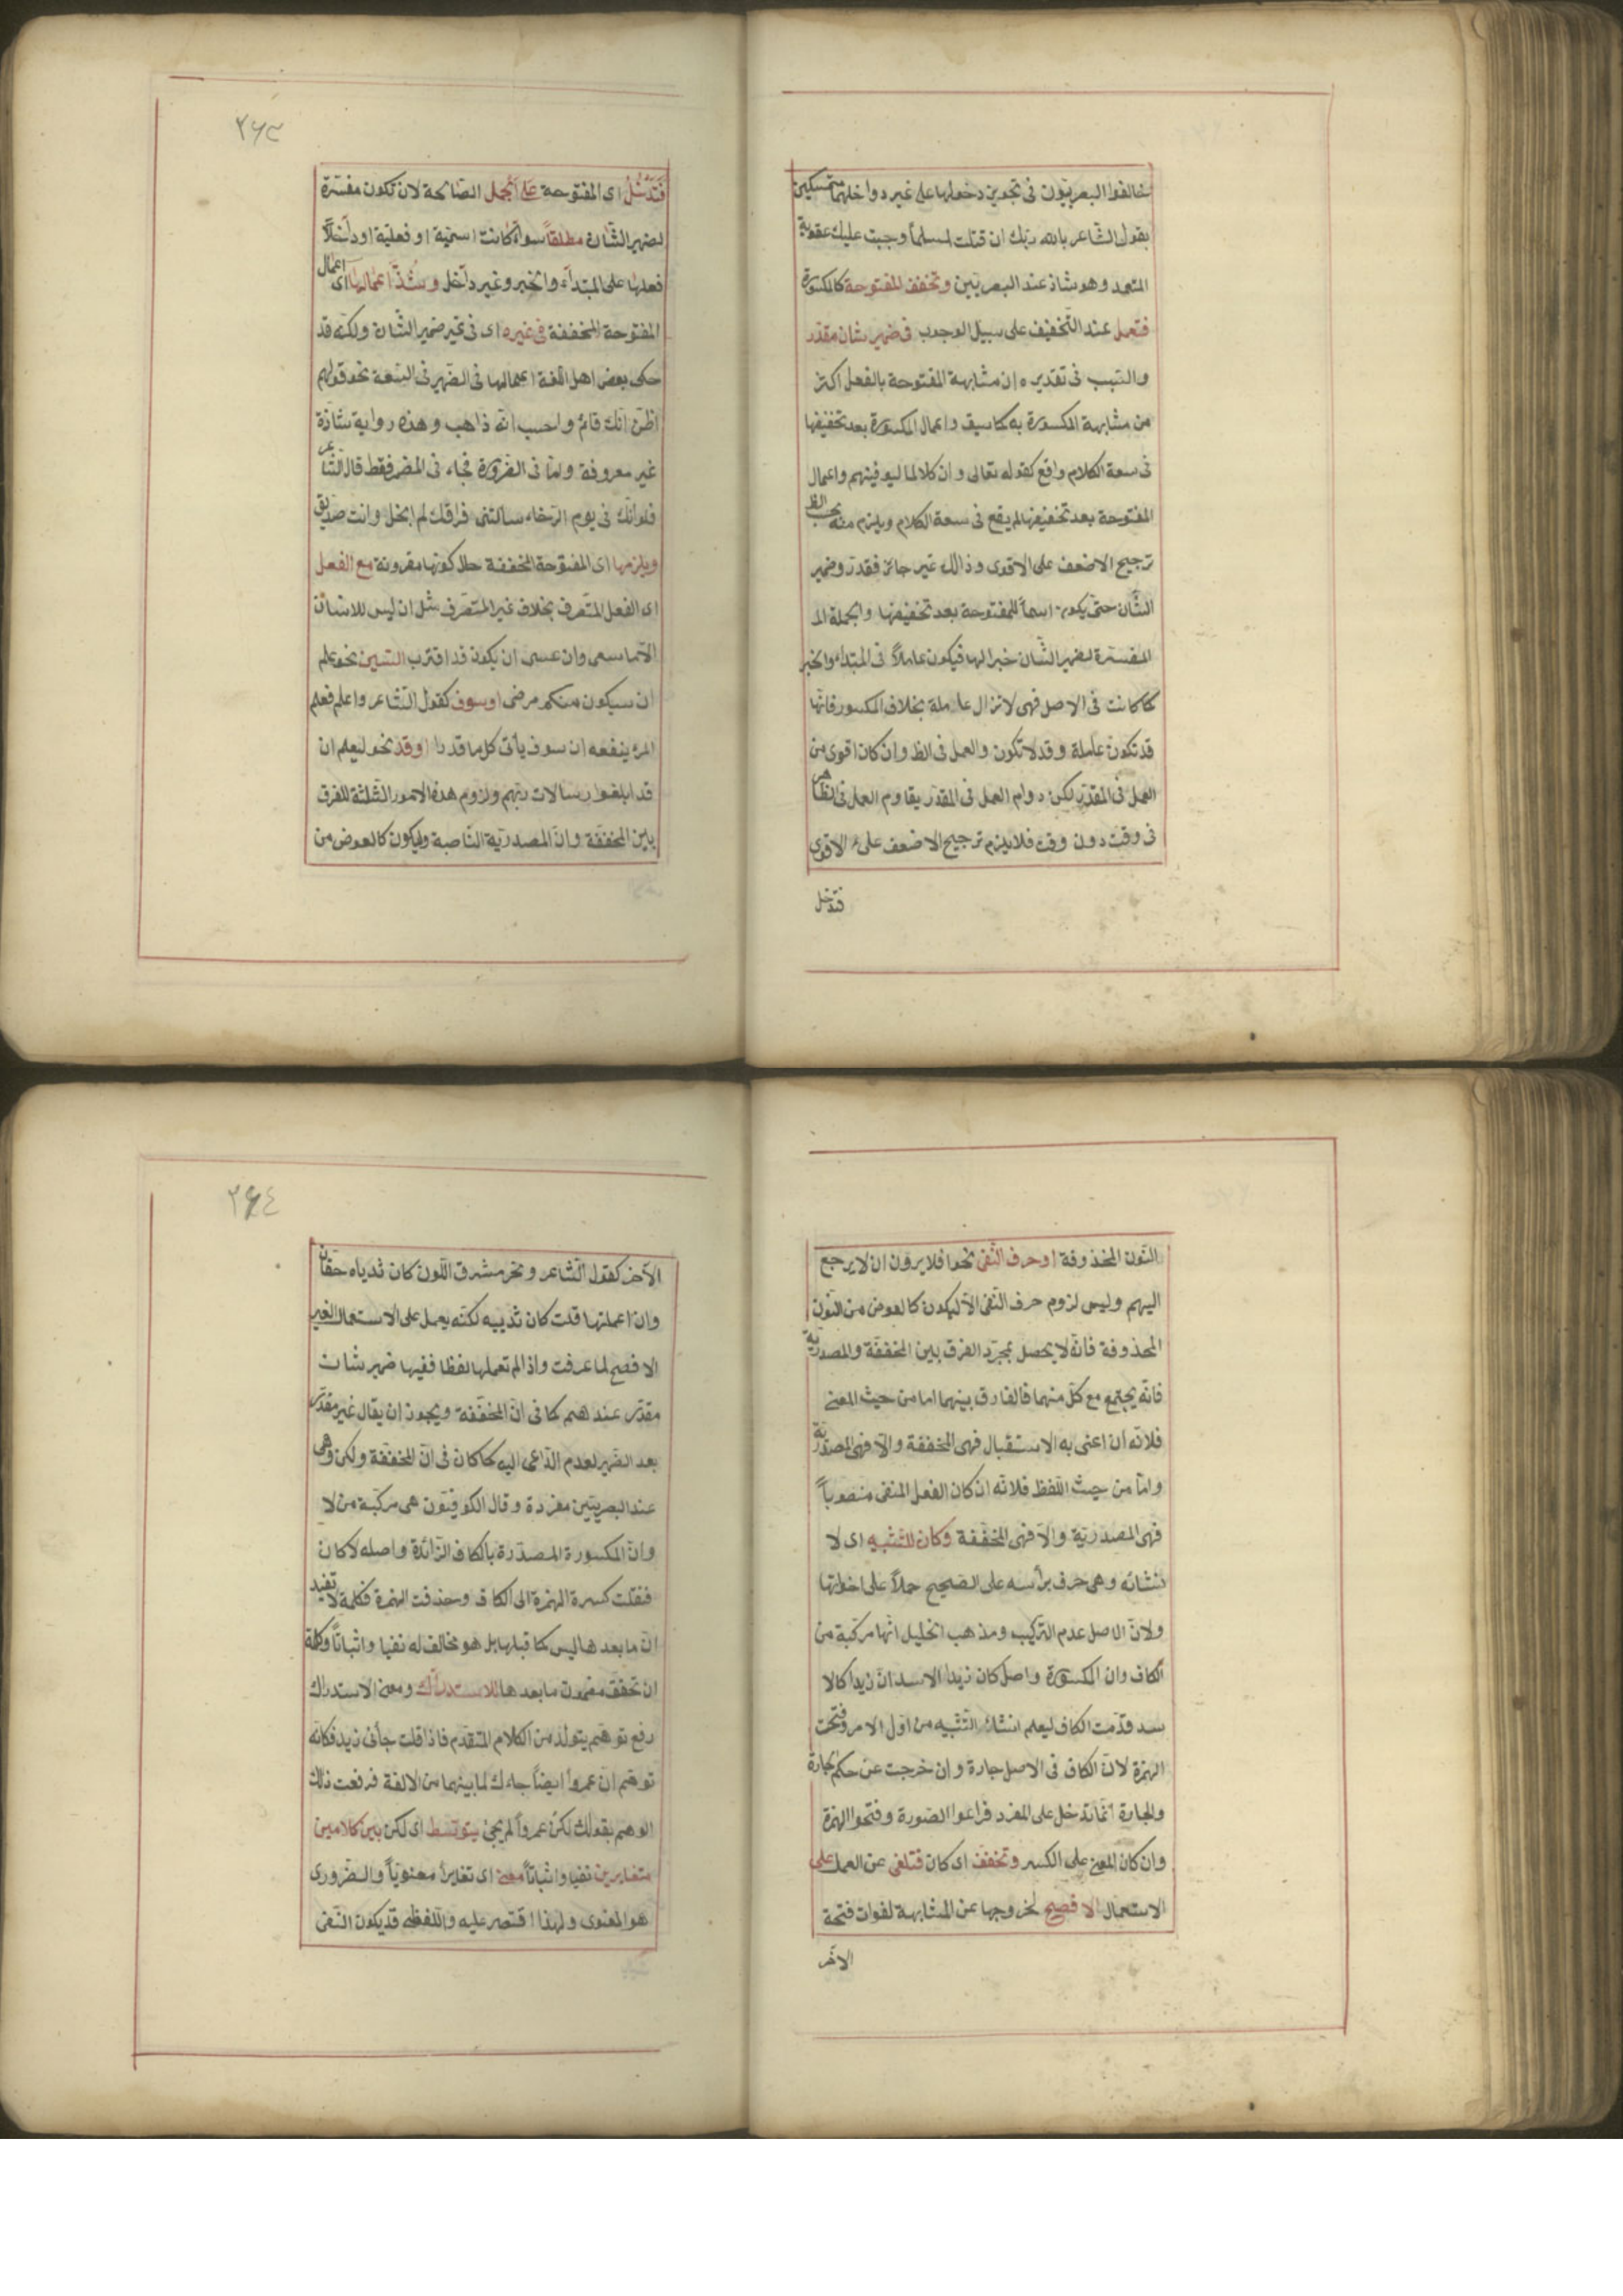 خالفوا البصريون فى تجويز دخولها على غير دواخلها متمسكين
بقول الشاعر بالله ربك ان قتلت لمسلماً وجبت عليك عقوبة
المتعمد وهو شاذ عند البصريين وتخفف المفتوحة كالمكسورة
فتعمل عند التخفيف على سبيل الوجوب فى ضمير شان مقدر
والسبب فى تقديره ان مشابهة المفتوحة بالفعل اكثر
من مشابهة المكسورة به كما سبق واعمال المكسورة بعد تخفيفها
فى سعة الكلام واقع كقوله تعالى وان كلا لما ليوفينهم واعمال
المفتوحة بعد تخفيفها لم يقع فى سعة الكلام ويلزم منه بحسب الظ
ترجيح الاضعف على الاقوى وذالك غير جائز فقدروا ضمير
الشأن حتى يكون اسماً للمفتوحة بعد تخفيفها والجملة الم
المفسرة لضمير الشان خبرا لها فيكون عاملاً فى المبتداء والخبر
كما كانت فى الاصل فهى لا تزال عاملة بخلاف المكسور فانها
قد تكون عاملة وقد لا تكون والعمل فى الظ وان كان اقوى من
العمل فى المقدر لكن دوام العمل فى المقدر يقاوم العمل فى الظاهر
فى وقت دون وقت فلا يلزم ترجيح الاضعف على الاقوى
فتدخل
٢٦٣
فتدخل اى المفتوحة على الجمل الصالحة لان تكون مفسرة
لضمير الشأن مطلقاً سواء كانت اسمية او فعلية او داخلاً
فعلها على المبتداء والخبر وغير داخل وشذ اعمالها اى اعمال
المفتوحة المخففة فى غيره اى فى غير ضمير الشان ولكنه قد
حكى بعض اهل اللغة اعمالها فى الضمير فى السعة نحو قولهم
اظن انك قائم واحسب انه ذاهب وهذه رواية شاذة
غير معروفة واما فى الضرورة فجاء فى المضمر فقط قال الشاعر
فلو انك فى يوم الرخاء سألتنى فراقك لم ابخل وانت صديق
ويلزمها اى المفتوحة المخففة حال كونها مقرونة مع الفعل
اى الفعل المتصرف بخلاف غير المتصرف مثل ان ليس للانسان
الا ما سعى وان عسى ان يكون قد اقترب السين نحو علم
ان سيكون منكم مرضى او سوف كقول الشاعر واعلم فعلم
المرء ينفعه ان سوف يأتى كل ما قدرا او قد نحو ليعلم ان
قد ابلغوا رسالات ربهم ولزوم هذه الامور الثلثة للفرق
بين المخففة وان المصدرية الناصبة وليكون كالعوض من
النون المحذوفة او حرف النفى نحو افلا يرون ان لا يرجع
اليهم وليس لزوم حرف النفى الا ليكون كالعوض من النون
المحذوفة فانه لا يحصل بمجرد الفرق بين المخففة والمصدرية
فانه يجتمع مع كل منهما فالفارق بينهما اما من حيث المعنى
فلانه ان اعنى به الاستقبال فهى المخففة والا فهى المصدرية
واما من حيث اللفظ فلانه ان كان الفعل المنفى منصوباً
فهى المصدرية والا فهى المخففة وكان للتشبيه اى لا
نشائه وهى حرف برأسه على الصحيح حملاً على اخواتها
ولان الاصل عدم التركيب ومذهب الخليل انها مركبة من
الكاف وان المكسورة واصل كان زيدا الاسد ان زيدا كالا
سد قدمت الكاف ليعلم انشاء التشبيه من اول الامر وفتحت
الهمزة لان الكاف فى الاصل جارة وان خرجت عن حكم الجارة
والجارة انما تدخل على المفرد فراعوا الصورة وفتحوا الهمزة
وان كان المعنى على الكسر وتخفف اى كان فتلغى عن العمل على
الاستعمال الافصح لخروجها عن المشابهة لفوات فتحة
الاخر
٢٦٤
الآخر كقول الشاعر ونحر مشرق اللون كان ثدياه حقان
وان اعملتها قلت كان ثدييه لكنه يعمل على الاستعمال الغير
الافصح لما عرفت واذا لم تعملها لفظا ففيها ضمير شان
مقدر عندهم كما فى ان المخففة ويجوز ان يقال غير مقدر
بعد الضمير لعدم الداعى اليه كما كان فى ان المخففة ولكن وهى
عند البصريين مفردة وقال الكوفيون هى مركبة من لا
وان المكسورة المصدرة بالكاف الزائدة واصله لا كان
فنقلت كسرة الهمزة الى الكاف وحذفت الهمزة فكلمة لا تفيد
ان ما بعدها ليس كما قبلها بل هو مخالف له نفيا واثباتاً وكلمة
ان تحقق مضمون ما بعدها للاستدراك ومعنى الاستدراك
رفع توهم يتولد من الكلام المتقدم فاذا قلت جائنى زيد فكانه
توهم ان عمرواً ايضاً جاءك لما بينهما من الالفة فرفعت ذلك
الوهم بقولك لكن عمرواً لم يجئ يتوسط اى لكن بين كلامين
متغايرين نفيا واثباتاً معنى اى تغايراً معنوياً والضرورى
هو المعنوى ولهذا اقتصر عليه واللفظى قد يكون النفى